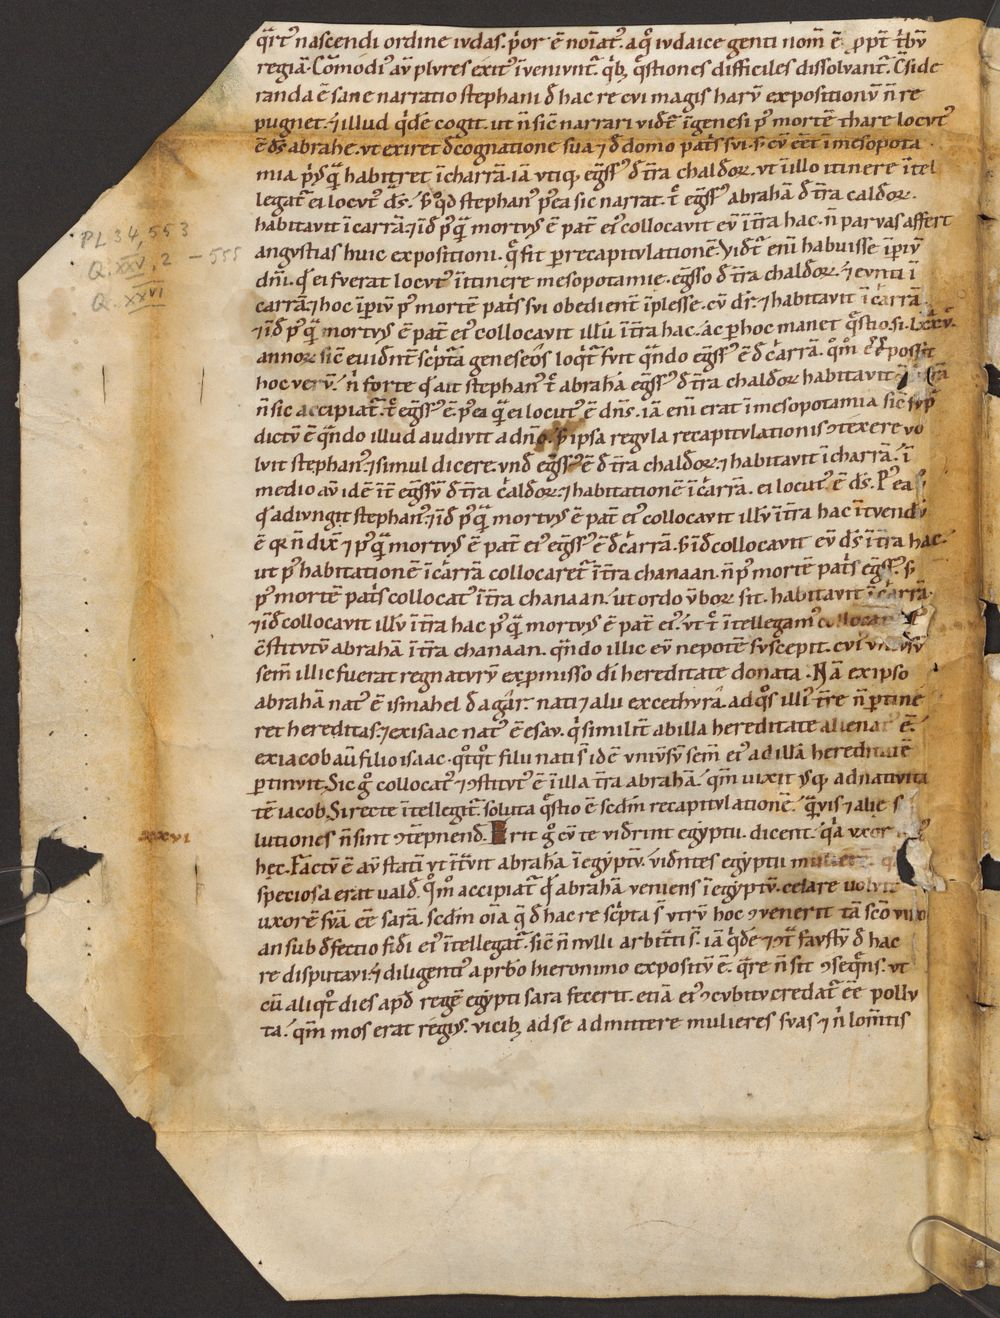 q̄rtꝰ nascendi ordine iudas. p̍or ē nom̄atꝰ. a qͦ iudaice genti nom̄ ē ꝓpt̄ t̍bū
regiā. Com̄odiꝰ aū plures exitꝰ īueniunt᷑. qͥbꝫ q̄stiones difficiles dissoluant᷑. C̄side
randa ē sane narratio stephani đ hac re cui magis harū expositionū n̄ re
pugnet. ⁊ illud qͥdē cogit. ut n̄ sic̄ narrari uidēt᷑ īgenesi pꝰ mortē thare locutꝰ
ē dꝰs abrahe. ut exiret đ cognatione sua ⁊ đ domo pat̍s sui. s; cū eēt īmesopota
mia p̍usqͣ̄ habitaret īcharrā. iā utiqꝫ eg̍ssꝰ đ t̄ra chaldeoꝝ. ut īillo itinere ītel
legat᷑ ei locutꝰ dꝰs. S; qͦd stephanꝰ pꝰea sic narrat. t̄c eg̍ssꝰ abrahā đ t̄ra caldeoꝝ.
habitauit ī carrā. ⁊ īđ pꝰqͣ̄ mortuus ē pat̄ eiꝰ collocauit eū ī t̄ra hac. n̄ paruas affert
angustias huic expositioni. qͣ̄ fit per recapitulationē. Uidet᷑ enī habuisse īpiū
dn̄i. qđ ei fuerat locutꝰ īitinere mesopotamie. eg̍sso đ t̄ra chaldeoꝝ. ⁊ eunti ī
carrā. ⁊ hoc īpiū pꝰ mortē pat̍s sui obedient᷑ īplesse. cū d̄r. ⁊ habitauit ī carrā.
⁊ īđ pꝰqͣ̄ mortuus ē pat̄ eiꝰ collocauit illū ī t̄ra hac. ac per hoc manet q̄stio. si .Lxxv.
annoꝝ sic̄ euident᷑ sc̍pt̄a geneseos loqͥt᷑ fuit qn̄do eg̍ssꝰ ē đ carrā. qͦm̄ possit
hoc ueꝝ. n̍ forte qđ ait stephanꝰ t̄c abrahā eg̍ssꝰ đ t̄ra chaldeoꝝ habitauit
n̄ sic accipiat᷑. t̄c eg̍ssꝰ ē. pꝰea qͣ̄ ei locutꝰ ē dn̄s. iā enī erat īmesopotamia sic̄ sup̄
dictū ē qn̄do illud audiuit a dn̄o. S; ipsa regula recapitulationis ꝯtexere uo
luit stephanꝰ. ⁊ simul dicere. unđ eg̍ssꝰ ē đ t̄ra chaldeoꝝ. ⁊ habitauit īcharrā. ī
medio aū idē ē īt̄ eg̍ssū đ t̄ra caldeoꝝ. ⁊ habitationē īcarrā. ei locutꝰ ē dꝰs. Pꝰea
qđ adiungit stephanꝰ. ⁊ īđ pꝰqͣ̄ mortuus ē pat̄ eiꝰ collocauit illū ī t̄ra hac. ītuendū
ē qꝛ n̄ dix̄ ⁊ pꝰqͣ̄ mortuus ē pat̄ eiꝰ eg̍ssꝰ ē đ carrā. S; īđ collocauit eū dꝰs ī t̄ra hac.
ut pꝰ habitationē īcarrā collocaret᷑ ī t̄ra chanaan. n̄ pꝰ mortē pat̍s eg̍ssꝰ. S;
pꝰ mortē pat̍s collocatꝰ ī t̄ra chanaan. ut ordo ūboꝝ sit. habitauit īcarrā.
⁊ īđ collocauit illū ī t̄ra hac pꝰ qͣ̄ mortuus ē pat̄ eiꝰ. ut t̄c ītellegamꝰ
ꝯstitutū abrahā ī t̄ra chanaan. qn̄do illic eū nepotē suscepit. cui
sem̄ illic fuerat regnaturū ex ꝓmisso di hereditate donata. Nā ex ipso
abrahā natꝰ ē ismahel đ agar. nati ⁊ alii ex cethura. ad qͦs illiꝰ t̄re n̄ ꝑtine
ret hereditas. ⁊ exisaac natꝰ ē esau. qͥ similit᷑ abilla hereditate alienatꝰ ē.
exiacob aū filio isaac. qͦtqͦt filii nati s̄ idē uniūsū sem̄ eiꝰ ad illā hereditatē
ꝑtinuit. Sic gͦ collocatꝰ ⁊ ꝯstitutꝰ ē īilla t̄ra abrahā. qm̄ uixit usqꝫ ad natiuita
tē iacob. Si recte ītellegit᷑. soluta q̄stio ē secđm recapitulationē. qͣ̄uis ⁊ alie s
lutiones n̄ sint ꝯtēpnend̄. Erit gͦ cū te uiderint egyptii. dicent. qͥa uxor
hec. Factū ē aū statī ut īt̄uit abrahā īegyptū. uidentes egyptii
speciosa erat ualđ. qͦm̄ accipiat᷑ qđ abrahā ueniens īegyptū. celare uoluit
uxorē suā eē sarā. secđm oīa q̄ đ hac re sc̍pta s̄ utrū hoc ꝯuenerit tā sc̄o uiro
an sub đfectio fidei eiꝰ ītellegat᷑. sic̄ n̄nulli arbit̄ti s̄. iā qͥdē ⁊ ꝯt̄ faustū đ hac
re disputaui. ⁊ diligentiꝰ a pr̄bo hieronimo expositū ē. q̄re n̄ sit ꝯseq̄ns. ut
cū aliqͦt dies apđ regē egypti sara fecerit. etiā eiꝰ ꝯcubitu credat᷑ eē pollu
ta. qm̄ mos erat regiꝰ. uicibꝫ ad se admittere mulieres suas. ⁊ n̍ lom̄tis
xxvi
PL 34, 553
Q. XXV, 2 – 555
Q. XXVI